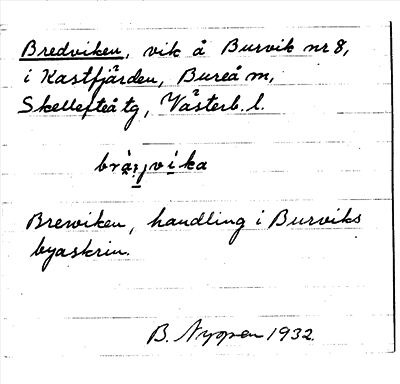 Bredviken, vik å Burvik nr 8,
i Kastfjärden, Bureå sn,
Skellefteå tg, Västerb. l.
Brewiken, handling i Burviks
byaskrin.
B. Nyman 1932.